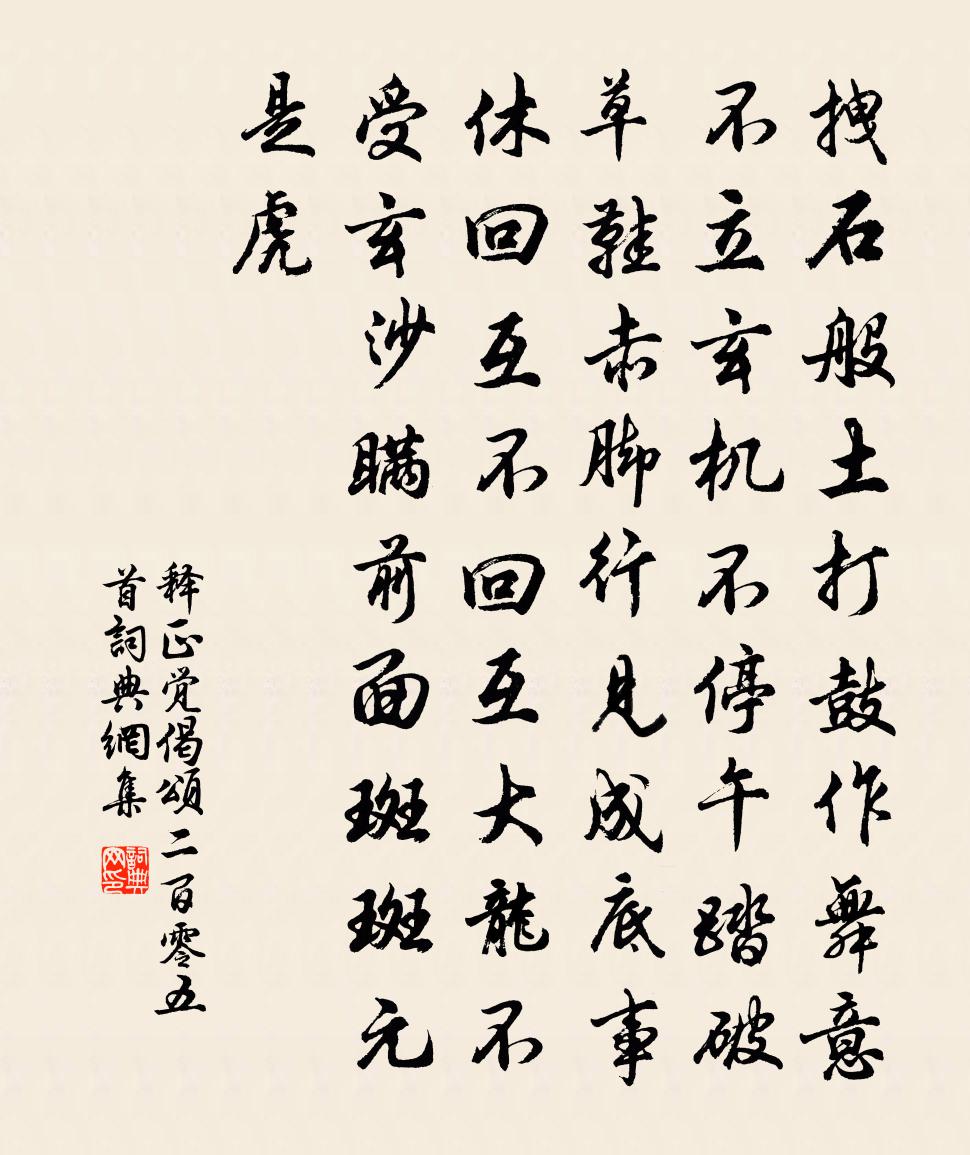 拽石般土打鼓作舞意
不立玄机不停午踏破
草鞋赤脚行見成底事
休回互不回互大龍不
受玄沙瞞前面斑斑元
是虎
释正覺偈頌二百零五
首詞典網集
詞典網印